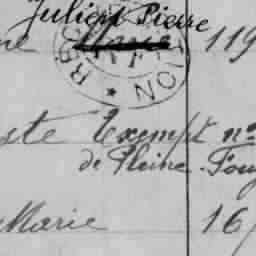 Julien Pierre
ne Marie 119
RÉC ION
ste Exempt no
de Pleine-Foug
Marie 16